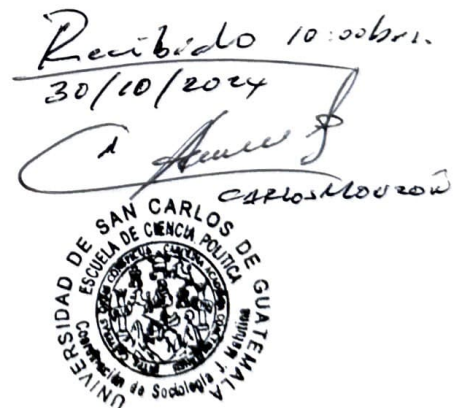 Recibido 10:00hrs.
30/10/2024
CARLOS MONZÓN
UNIVERSIDAD DE SAN CARLOS DE GUATEMALA
ESCUELA DE CIENCIA POLITICA
Coordinación de Sociología J. Matutina